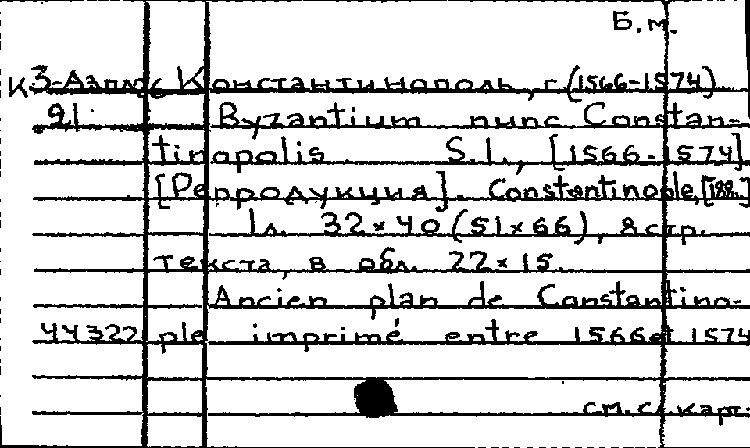 Б.м.
К 3-Азпл/6 Константинополь, г. (1566-1574)
91 Byzantium nunc Constan-
tinopolis S.l., [1566-1574]
[Репродукция]. Constantinople, [188.]
1 л. 32×40 (51×66), 8 стр.
текста, в обл. 22×15.
Ancien plan de Constantino-
44322 ple imprimé entre 1566 et 1574
см. сл. карт.